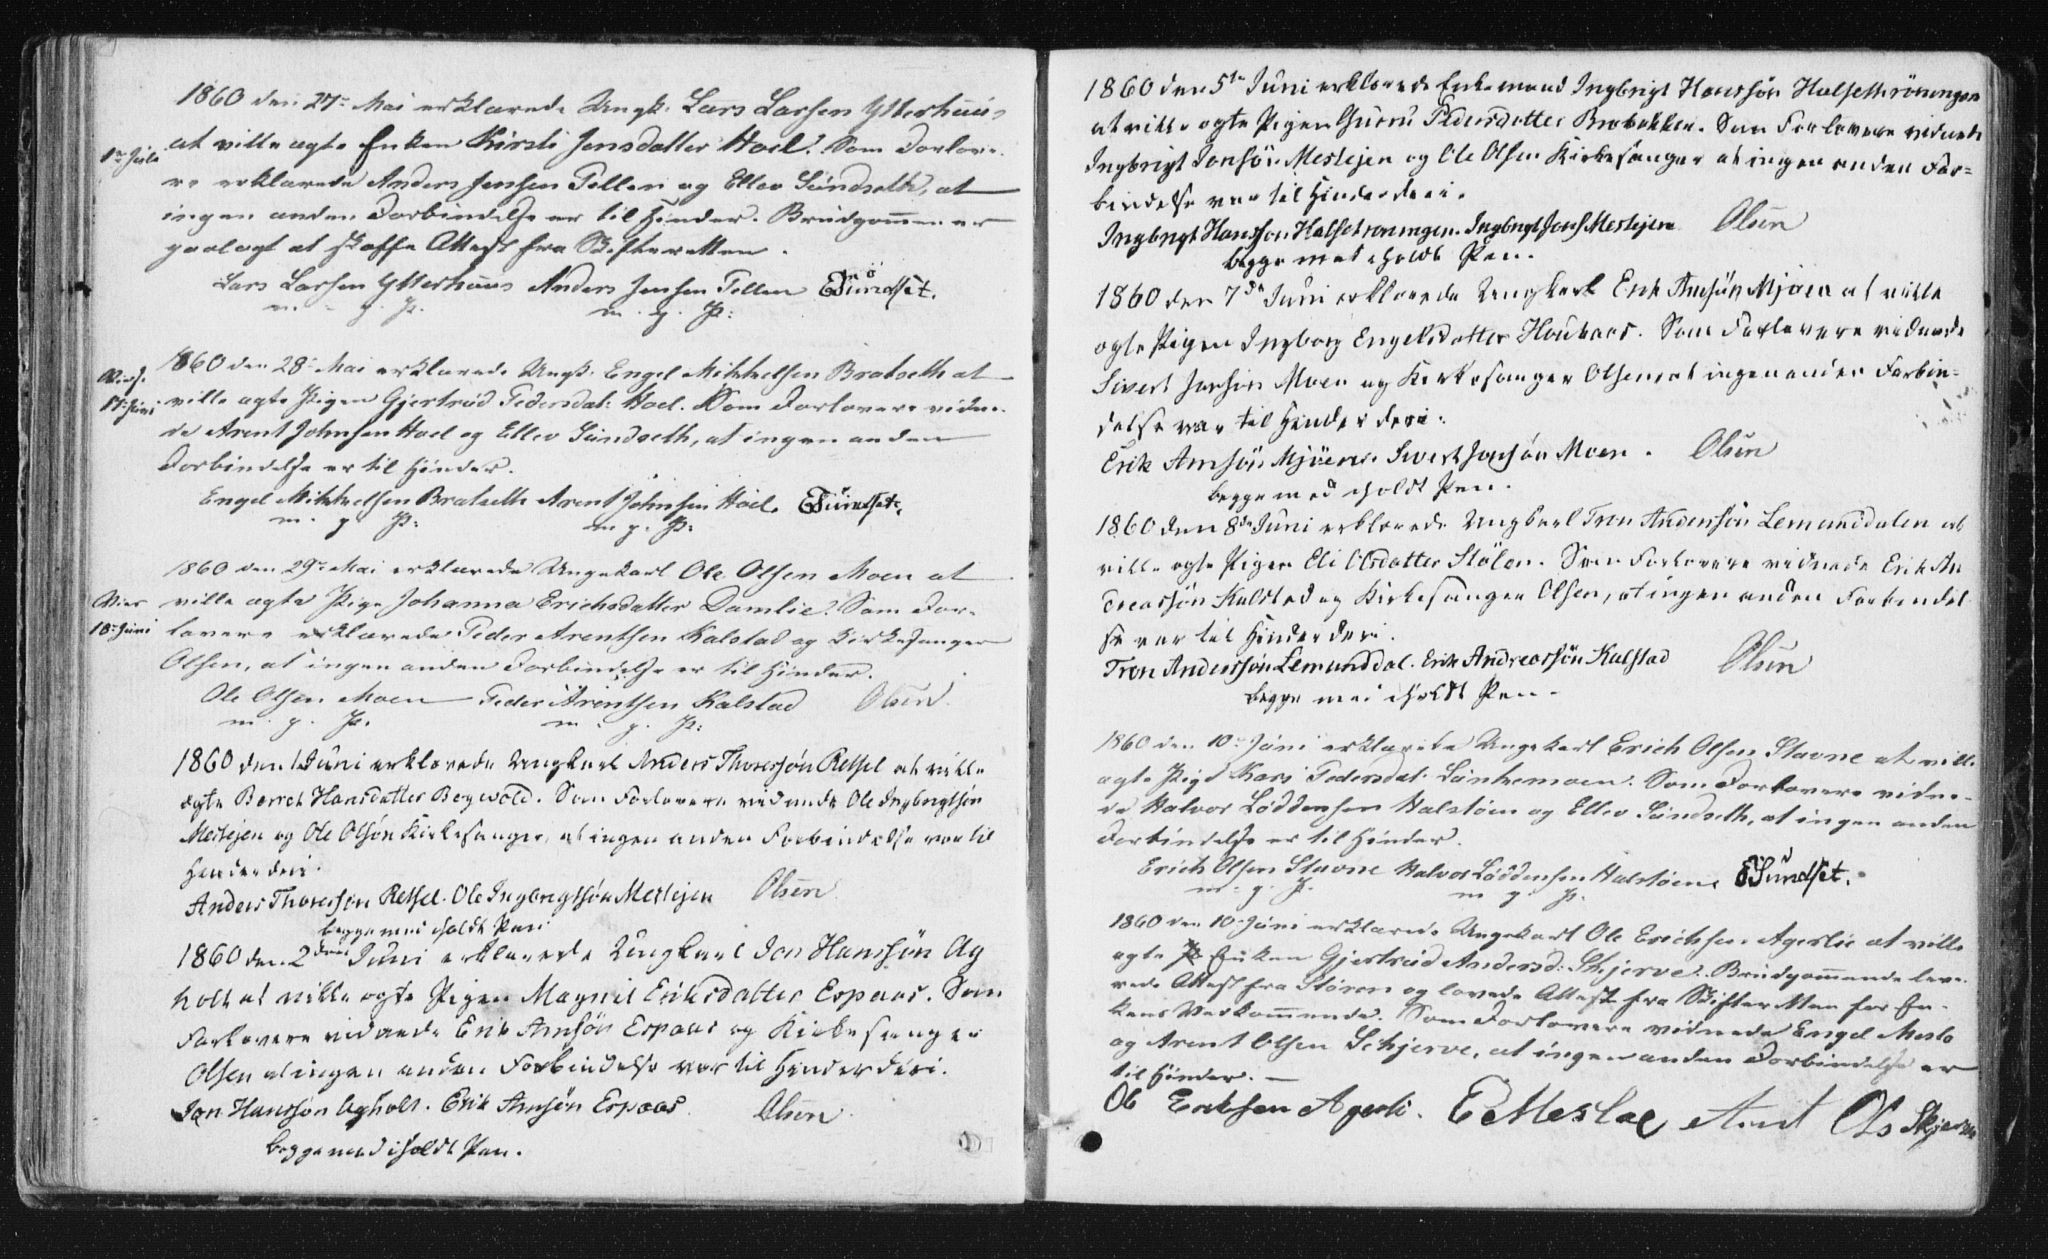 1860 den 27de Mai erklærede Ungk. Lars Larsen Ytterhuus
at ville ægte Enken Kirsti Jensdatter Hoel. Som Forlove-
1ste Juli
re erklærede Anders Jensen Tellen og Ellev Sundseth, at
ingen anden Forbindelse er til Hinder. Brudgommen er
paalagt at skaffe Attest fra Skifteretten.
Lars Larsen Ytterhuus Anders Jensen Tellen ESundset.
m. p. P. m. p. P:
1860 den 28de Mai erklærede Ungk. Engel Mikkelsen Bratseth at
Viede
17de Juni
ville ægte Pigen Gjertrud Pedersdat. Hoel. Som Forlovere vidne-
de Arent Johnsen Hoel og Ellev Sundseth, at ingen anden
Forbindelse er til Hinder.
Engel Mikkelsen Bratseth Arent Johnsen Hoel. ESundset.
m. p. P: m. p. P:
1860 den 29de Mai erklærede Ungekarl Ole Olsen Moen at
Viet
18de Juni
ville ægte Pige Johanna Erichsdatter Damlie. Som For-
lovere erklærede Peder Arentsen Kalstad og Kirkesanger
Olsen, at ingen anden Forbindelse er til Hinder.
Ole Olsen Moen Peder Arentsen Kalstad Olsen
m. p. P. m. p. P:
1860 den 1 Juni erklærede Ungkarl Anders Thoressøn Retsel at ville
ægte Berret Hansdatter Bogwold. Som Forlovere vidnede Ole Ingbrigtsøn
Meslejen og Ole Olsøn Kirkesanger, at ingen anden Forbindelse var til
Hinder deri.
Anders Thoressøn Retsel. Ole Ingbrigtsøn Meslejen Olsen
begge med iholdt Pen
1860 den 2den Juni erklærede Ungkarl Jon Hanssøn Ag
holt at ville ægte Pigen Magnil Eriksdatter Espaas. Som
Forlovere vidnede Erik Arnsøn Espaas og Kirkesanger
Olsen at ingen anden Forbindelse var til Hinder deri.
Jon Hanssøn Agholt. Erik Arnsøn Espaas Olsen
begge med iholdt Pen.
1860 den 5te Juni erklærede Enkemand Ingbrigt Hanssøn Halsethrøningen
at ville ægte Pigen Guru Pedersdatter Brobakken. Som Forlovere vidnede
Ingbrigt Jonsøn Meslejen og Ole Olsen Kirkesanger at ingen anden For-
bindelse var til Hinder deri.
Ingbrigt Hanssøn Halsetrøningen. Ingbrigt Jons Meslejen Olsen
begge med iholdt Pen.
1860 den 7de Juni erklærede Ungkarl Erik Arnsøn Mjøen at ville
ægte Pigen Ingborg Engelsdatter Houkaas. Som Forlovere vidnede
Sivert Jonsøn Moen og Kirkesanger Olsen at ingen anden Forbin-
delse var til Hinder deri.
Erik Arnsøn Mjøen. Sivert Jonsøn Moen. Olsen
begge med iholdt Pen.
1860 den 8de Juni erklærede Ungkarl Tron Anderssøn Lemunddalen at
ville ægte Pigen Eli Olsdatter Stølen. Som Forlovere vidnede Erik An
dreassøn Kalstad og Kirkesanger Olsen, at ingen anden Forbindel
se var til Hinder deri.
Tron Anderssøn Lemunddal. Erik Andreassøn Kalstad Olsen
begge med iholdt Pen.
1860 den 10de Juni erklærede Ungekarl Erich Olsen Stavne at ville
ægte Pige Kari Pedersdat. Suntremoen. Som Forlovere vidne-
de Halvor Loddensen Halstøen og Ellev Sundseth, at ingen anden
Forbindelse er til Hinder.
Erich Olsen Stavne Halvor Loddensen Halstøen ESundset.
m. p. P. m. p. P.
1860 den 10de Juni erklærede Ungekarl Ole Erichsen Agerlie at ville
ægte Enken Gjertrud Andersd. Skjerve. Brudgommen leve-
rede Attest fra Støren og lovede Attest fra Skifteretten for En-
kens Vedkommende. Som Forlovere vidnede Engel Meslo
og Arent Olsen Skjerve, at ingen anden Forbindelse er
til Hinder.
Ole Eriksen Agerli. E Mesloe Arnt Ols Skjerve